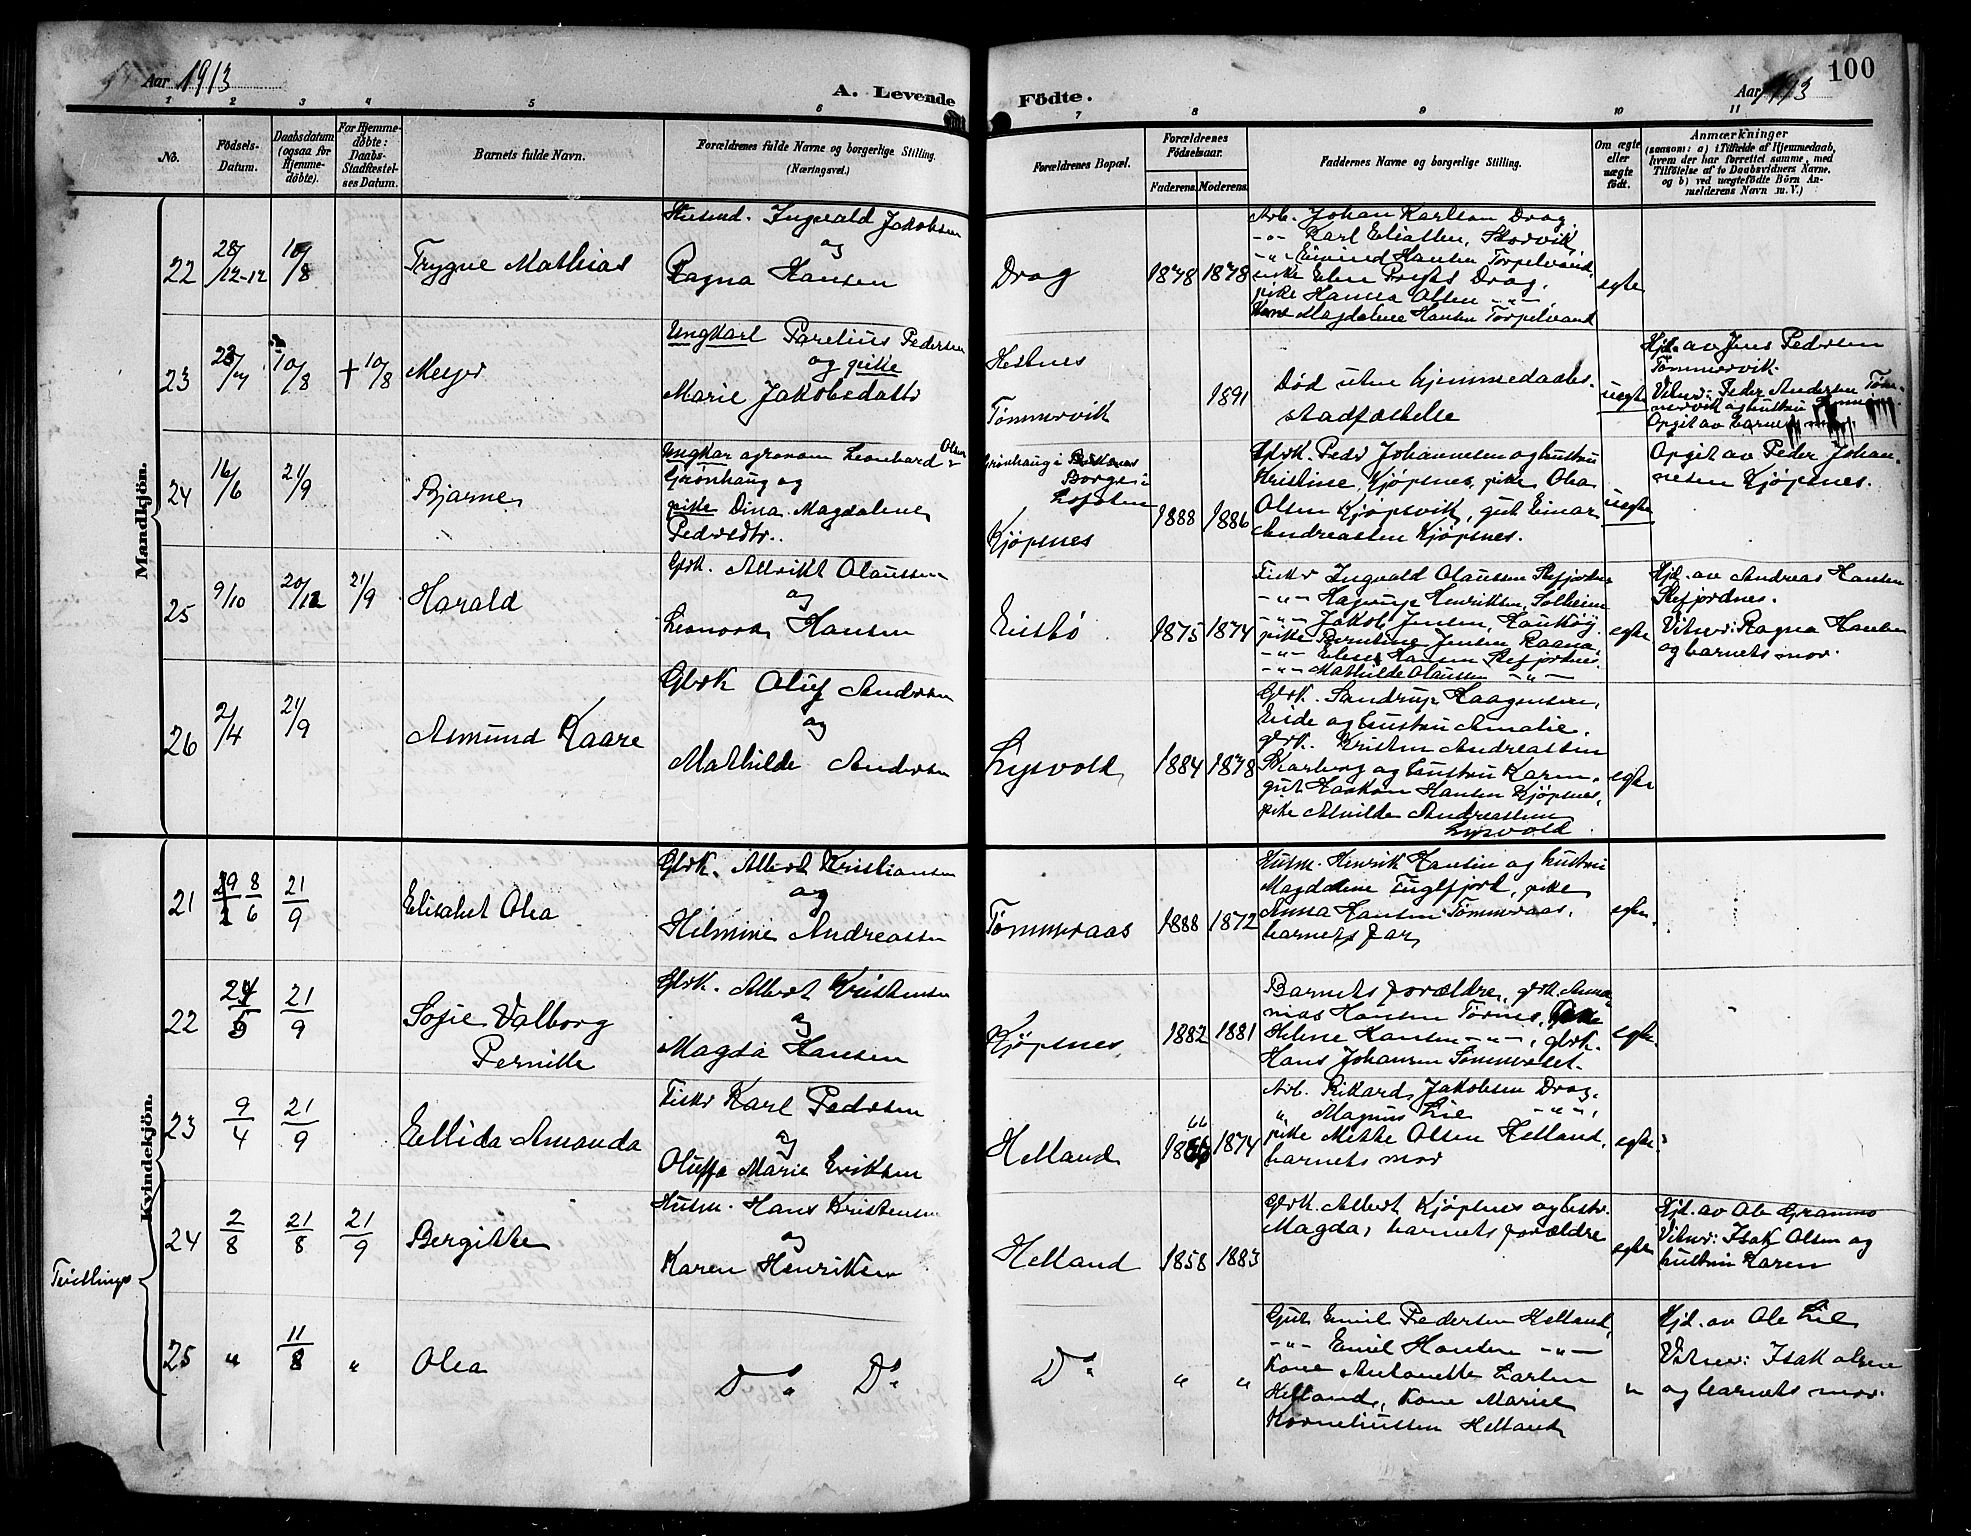 Aar 1913
A. Levende Födte.
Aar 1913
100
1 2 3 4 5 6 7 8 9 10 11
No.
Födsels-
Datum.
Daabsdatum
(ogsaa for
Hjemme-
döbte).
For Hjemme-
döbte:
Daabs-
Stadfæstel-
ses Datum.
Barnets fulde Navn.
Forældrenes fulde Navne og borgerlige Stilling.
(Næringsvei.)
Forældrenes Bopæl.
Forældrenes
Födselsaar.
Faderens. Moderens.
Faddernes Navne og borgerlige Stilling.
Om ægte
eller
uægte
födt.
Anmærkninger
(saasom: a) i Tilfælde af Hjemmedaab,
hvem der har forrettet samme, med
Tilföielse af to Daabsvidners Navne,
og b) ved uægtefödte Börn An-
melderens Navn m. V.)
Mandkjön.
22
28/12-12
10/8
Trygve Mathias
Husmd. Ingvald Jakobsen
og
Ragna Hansen
Drag
1878 1878
Arb. Johan Karlsen Drag
-"- Karl Eliassen, Storvik
-"- Eivind Hansen Torpelvand,
pike Hanna Olsen -"-,
Kone Magdalene Hansen Torpelvand
egte
23
23/7
10/8
+ 10/8
Meyer
Ungkarl Parelius Pedersen
og pike
Marie Jakobsdatter
Helnes
Tømmervik
1891
Død uten hjemmedaabs-
stadfæstelse
uegte
Hjd. av Jens Pedersen
Tømmervik.
Vitner: Peder Andersen Tøm-
mervik og hustru
Opgit av barnets mor.
24
16/6
21/9
Bjarne
Ungkar agronom Leonhard Olsen
Grønhaug og
pike Dina Magdalene
Pedersdtr.
Grønhaug i
Borge i
Lofoten
Kjøpsnes
1888 1886
Gbrk. Peder Johannesen og hustru
Kristine Kjøpsnes, pike Olea
Olsen Kjøpsvik, gut Einar
Andreassen Kjøpsnes.
uegte
Opgit av Peder Johan-
nesen Kjøpsnes.
25
9/10
20/12
21/9
Harald
Gbrk. Alvikt Olaussen
og
Leonora Hansen
Einebø
1875 1874
Fisker Ingvald Olaussen Stefjordnes
-"- Hagerup Henriksen, Solheim
-"- Jakob Jensen, Haukøy
pike Berntine Jensen Raana,
-"- Eline Hansen Stefjordnes.
-"- Mathilde Olaussen -"-
egte
Hjd. av Andreas Hansen
Stefjordnes.
Vitner: Ragna Hansen
og barnets mor.
26
2/4
21/9
Asmund Kaare
Gbrk Oluf Andersen
og
Mathilde Andersen
Lysvold
1884 1878
Gbrk. Sandrup Haagensen,
Eide og hustru Amalie,
gbrk. Kristen Andreassen
Skarberg og hustru Karen,
gut Haakon Hansen Kjøpsnes,
pike Alvilde Andreassen
Lysvold
egte
Kvindekjön.
21
8/6
21/9
Elisabet Olea
Gbrk. Albert Kristiansen
og
Helmine Andreassen
Tømmeraas
1888 1872
Husm. Henrik Hansen og hustru
Magdalene Fuglfjort, pike
Anna Hansen Tømmeraas,
barnets far
egte.
22
24/5
21/9
Sofie Valborg
Pernille
Gbrk. Albert Kristensen
og
Magda Hansen
Kjøpsnes
1882 1881
Barnets forældre, gbrk. Anna-
nias Hansen Tørnes,
Helene Hansen -"-, gbrk.
Hans Johansen Tømmeraset.
egte.
23
9/4
21/9
Ellida Amanda
Fisker Karl Pedersen
og
Oluffa Marie Eriksen
Helland
66
1866 1874
Arb. Rikard Jakobsen Drag,
" Magnus Lie -"-,
pike Mette Olsen Helland,
barnets mor
egte
Tvillinger
24
2/8
21/8
21/9
Bergitte
Husm. Hans Kristensen
og
Karen Henriksen
Helland
1858 1883
Gbrk. Albert Kjøpsnes og hustr.
Magda, barnets forældre
egte
Hjd. av Ole Grannes
Vitner: Isak Olsen og
hustru Karen
25
"
11/8
"
Olea
Do Do
Do
" "
Gut Emil Pedersen Helland,
-"- Emil Hansen -"-
Kone Antonette Larsen
Helland, Kone Marie
Korneliussen Helland
"
Hjd. av Ole Lie
Vitner: Isak Olsen
og barnets mor.